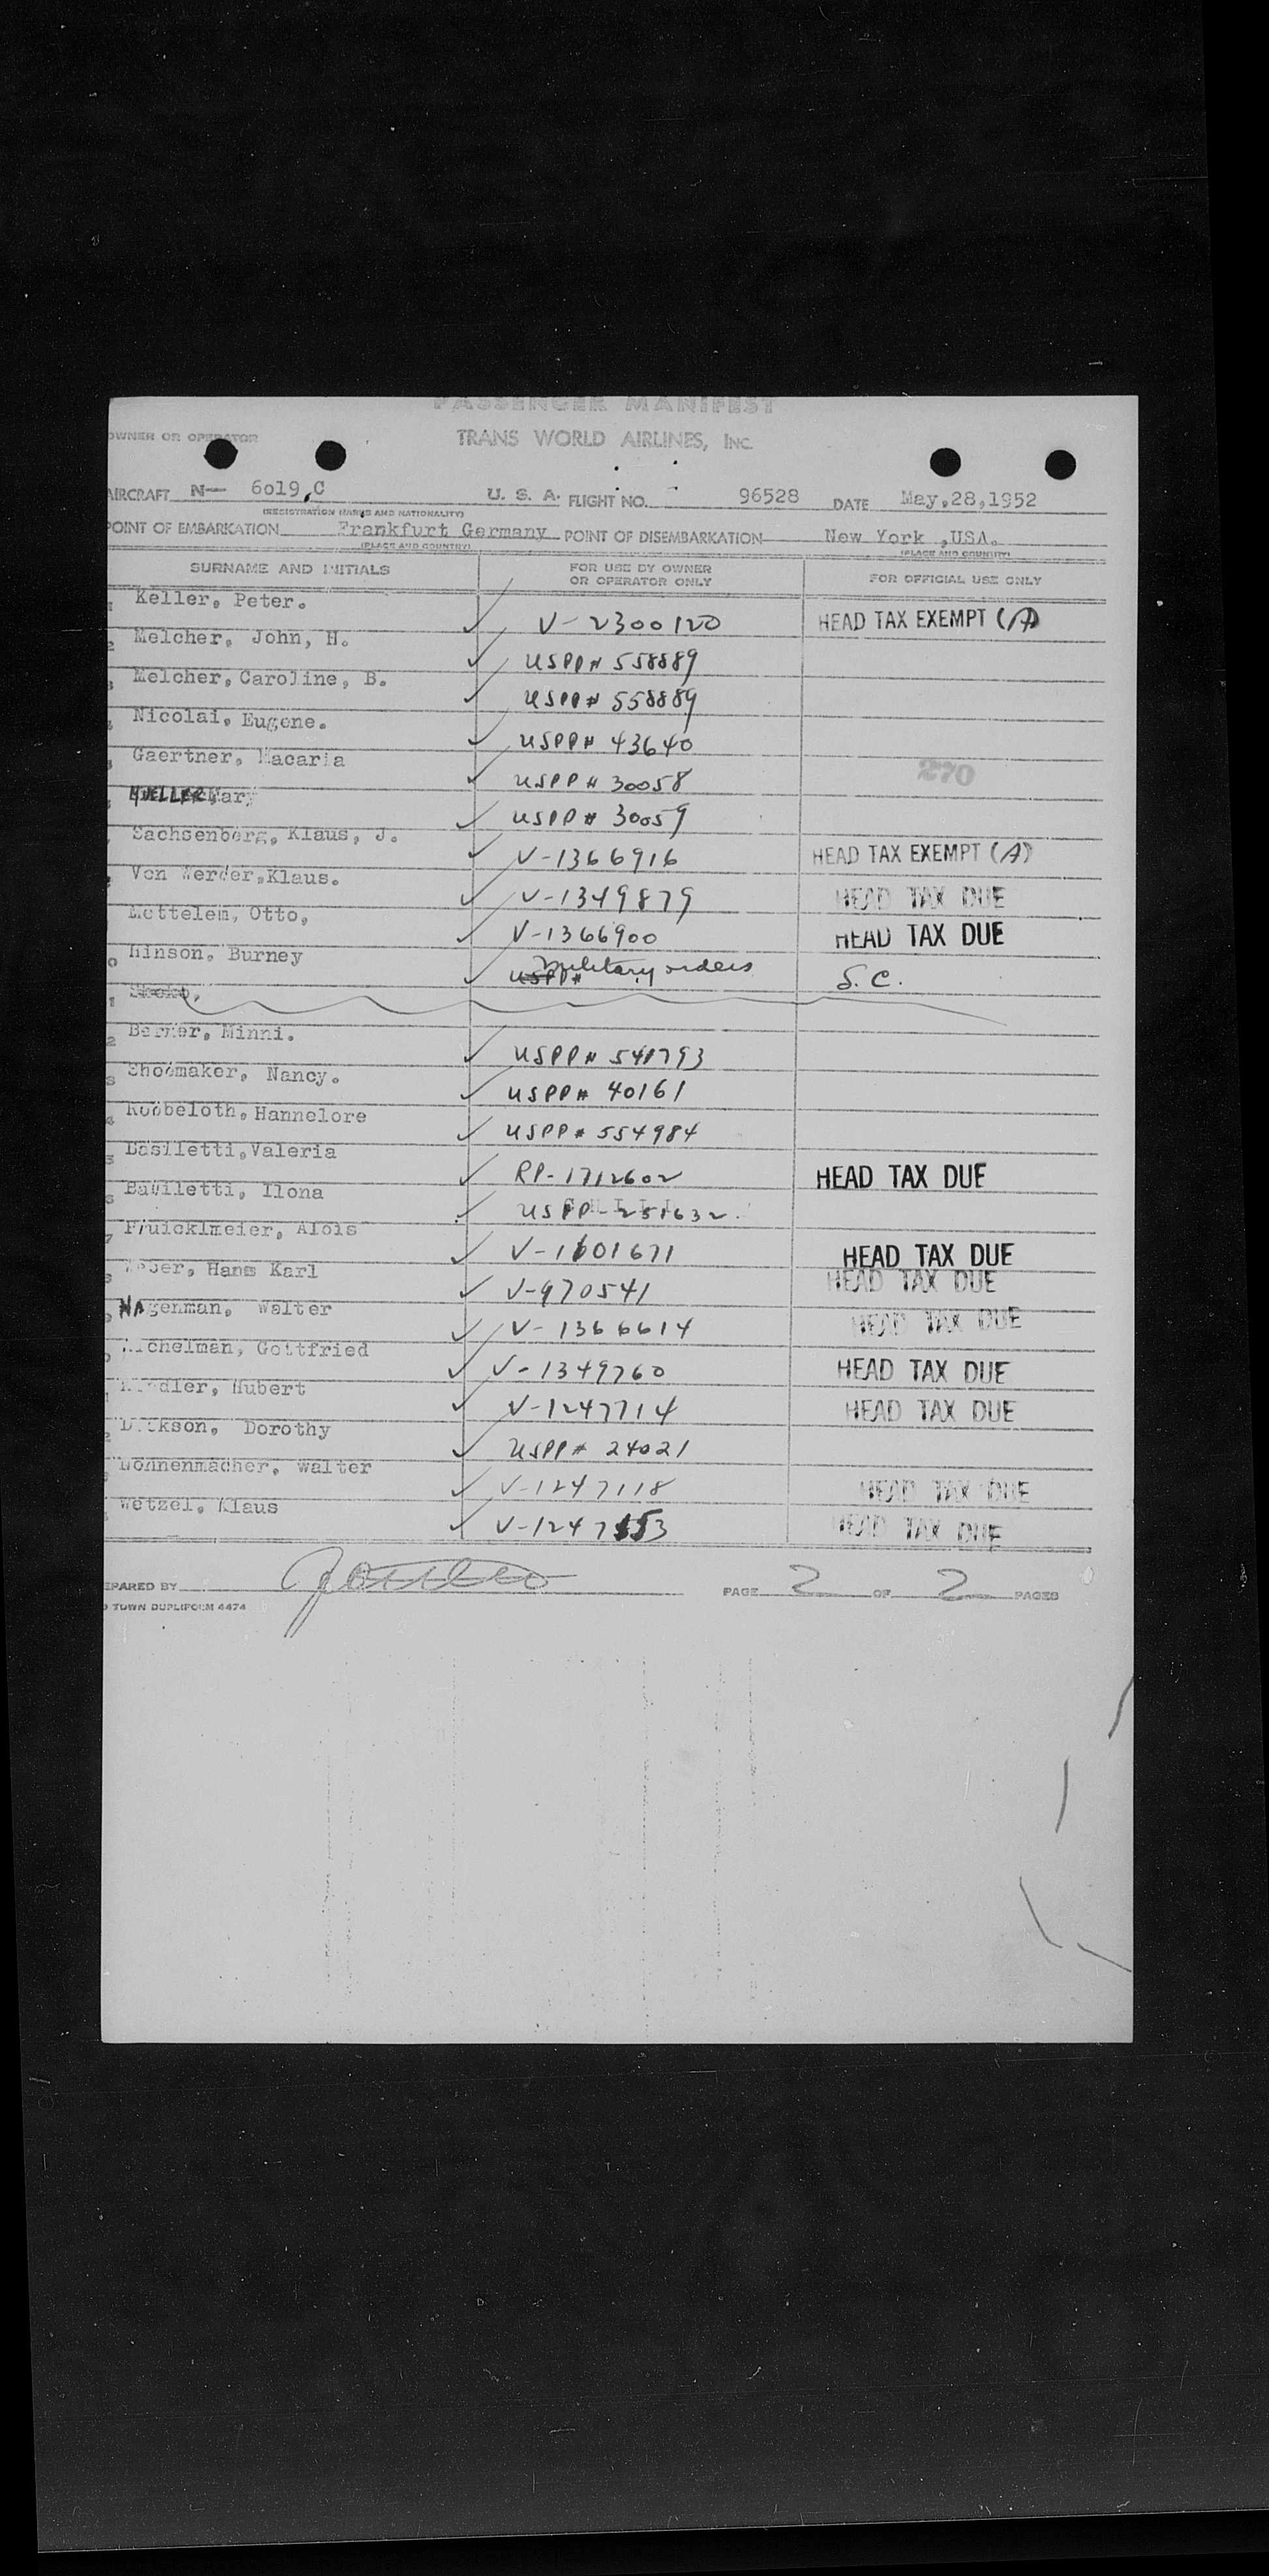 PASSENGER MANIFEST
OWNER OR OPERATOR TRANS WORLD AIRLINES, INC.
AIRCRAFT N— 6019,C U. S. A. FLIGHT NO. 96528 DATE May,28,1952
(REGISTRATION MARKS AND NATIONALITY)
POINT OF EMBARKATION Frankfurt Germany POINT OF DISEMBARKATION New York ,USA.
(PLACE AND COUNTRY) (PLACE AND COUNTRY)
SURNAME AND INITIALS FOR USE BY OWNER OR OPERATOR ONLY FOR OFFICIAL USE ONLY
Keller, Peter. V-2300120 HEAD TAX EXEMPT (A)
2 Melcher, John, H. USPP# 558889
Melcher, Caroline, B. USPP# 558889
Nicolai, Eugene. USPP# 43640
Gaertner, Macaria USPP# 30058 270
MUELLER, Mary USPP# 30059
Sachsenberg, Klaus, J. V-1366916 HEAD TAX EXEMPT (A)
Von Werder,Klaus. V-1349879 HEAD TAX DUE
Otto, V-1366900 HEAD TAX DUE
0 Hinson, Burney USPP# Military orders S.C.
1
2 Minni. USPP# 541793
3 Shoemaker, Nancy. USPP# 40161
4 Hannelore USPP# 554984
5 Valeria RP-1712602 HEAD TAX DUE
6 Ilona USPP-251632.
7 Alois V-1601671 HEAD TAX DUE
Hans Karl V-970541 HEAD TAX DUE
HAgenman, Walter V-1366614 HEAD TAX DUE
Gottfried V-1349760 HEAD TAX DUE
Hubert V-1247714 HEAD TAX DUE
2 Dickson, Dorothy USPP# 24021
Walter V-1247118 HEAD TAX DUE
Wetzel, Klaus V-1247553 HEAD TAX DUE
EPARED BY PAGE 2 OF 2 PAGES
TOWN DUPLIFORM 4474